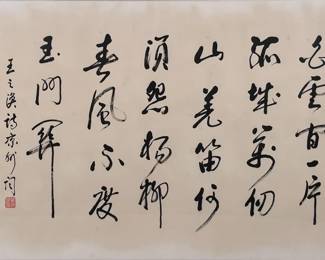 白雲間一片
孤城萬仞
山羌笛何
須怨楊柳
春風不度
玉門關
王之渙詩涼州詞